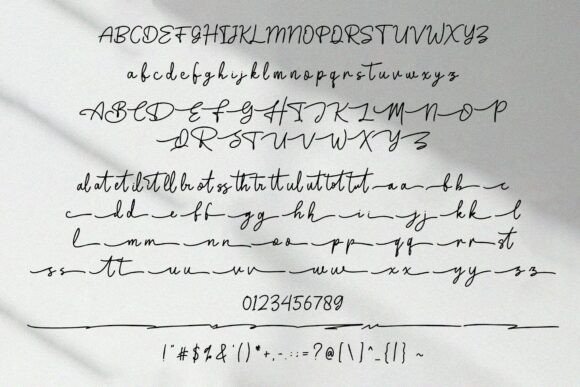 ABCDEFGHIJKLMNOPQRSTUVWXYZ
abcdefghijklmnopqrstuvwxyz
ABCDEFGHIJKLMNOP
QRSTUVWXYZ
al at et il rt ll br ot ss th tr tt ul ut tot tut a a b b c
c d d e f f g g h h i i j j k k l
l m m n n o o p p q q r r st
s s tt u u v v w w x x y y z z
0123456789
!"#$%&'()*+,-.:;=?@[\]^_{|}~